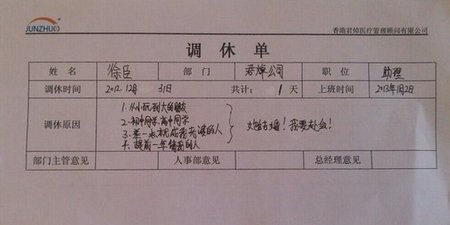 JUNZHUO
香港君焯医疗管理顾问有限公司
调休单
姓名 徐臣 部门 君焯公司 职位 助理
调休时间 2012.12月31日 共计: 1天 上班时间 2013年1月2日
调休原因
1.从小玩到大的朋友
2.初中同学,高中同学
3.差一点就成我
的人
4.提前一年
的人
要结婚!我要赴会!
部门主管意见 人事部意见 总经理意见